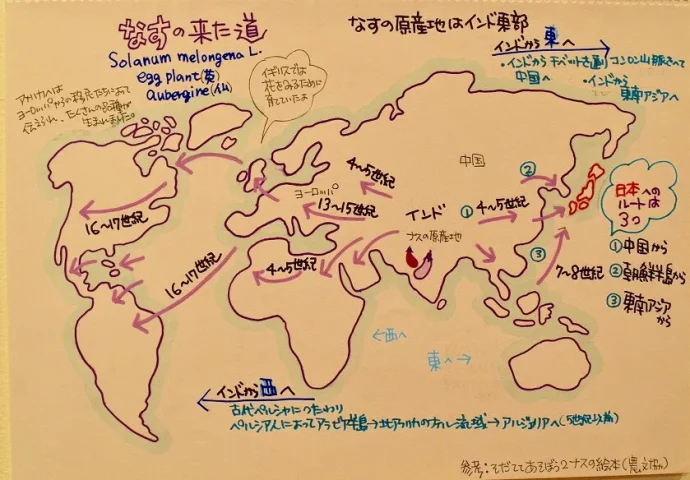 なすの来た道
Solanum melongena L.
egg plant(英)
aubergine(仏)
なすの原産地はインド東部
インドから東へ
・インドからチベットを通りコンロン山脈こえて
中国へ
・インドから
東南アジアへ
イギリスでは
花をみるために
育てていたよ
アメリカへは
ヨーロッパからの移民たちによって
伝えられ、たくさんの品種が
生まれました。
中国
ヨーロッパ
4〜5世紀
13〜15世紀
インド
ナスの原産地
① 4〜5世紀
②
③
7〜8世紀
16〜17世紀
16〜17世紀
4〜5世紀
日本への
ルートは
3つ
①中国から
②朝鮮半島から
③東南アジア
から
←西へ
東へ→
インドから西へ
古代ペルシャにつたわり
ペルシア人によってアラビア半島→北アフリカのナイル流域→アルジェリアへ(5世紀以前)
参考:そだててあそぼう2ナスの絵本(農文協)